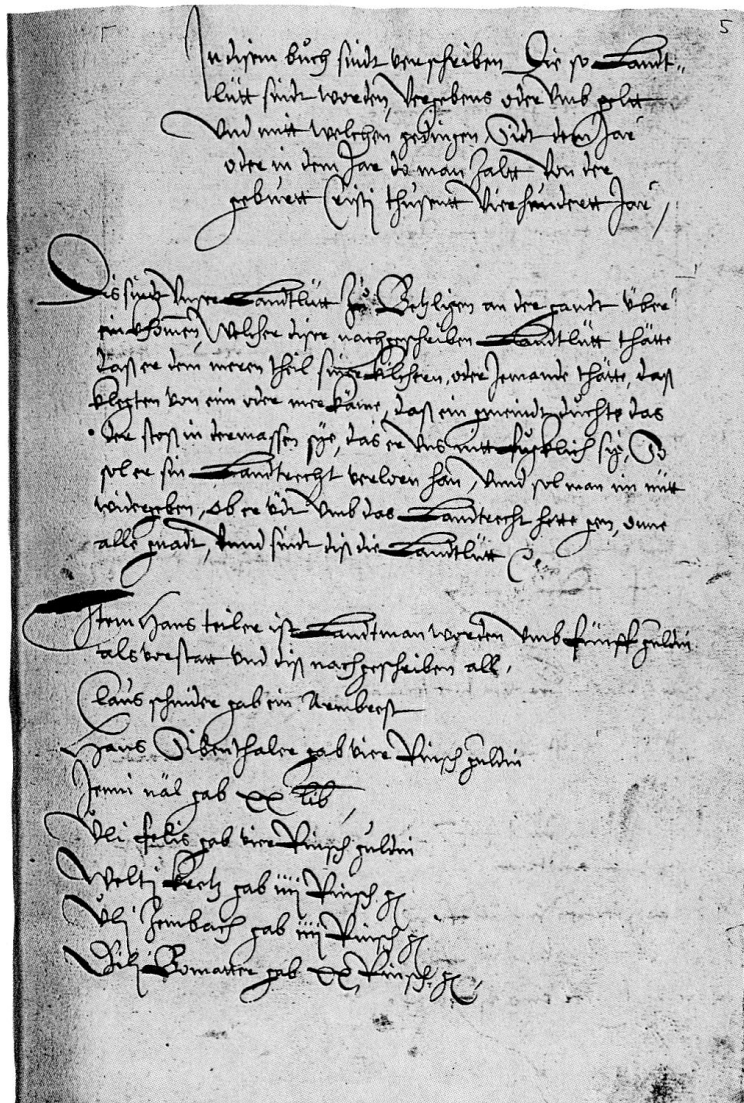 5
In disem bůch sindt verschriben Die so Landt„
lütt sindt worden, Vergebens oder Vmb geltt
Vnd mitt welchen gedingen, Sidt dem Jar
oder in dem Jar do man zaltt Von der
geburtt Cristi thusentt Vierhundertt Jar,
Dis sindt Vnser Landtlütt Zů an der gandt Über
ein khomen, Welcher diser nachgeschriben Landtlütt thätte
daß er dem meren theil siner kilchern, oder Jemands thätte, daß
klegten von ein oder mer käme, daß ein gmeindt duchte das
der stoß in dermassen sye, das er vns nütt fůgklich sig, So
sol er sin Landtrecht verloren han, Vnnd sol man im nütt
widergeben, ob er üdt Vmb das Landtrecht hette gen, onne
alle gnadt, Vnnd sindt diß die Landtlütt
Item Hans teiler ist Landtman worden Vmb fünff guldin
als vorstatt vnd diß nachgeschriben all,
Claus schnider gab ein Armbrest
Hans Sibenthaler gab vier Rinsch guldin
Jenni näl gab xx lib,
Ůli felis gab vier Rinsch guldin
Weltj gab iiij Rinsch g
Ůlj Zembach gab iiij Rinsch g
gab xx, Rinsch, g,